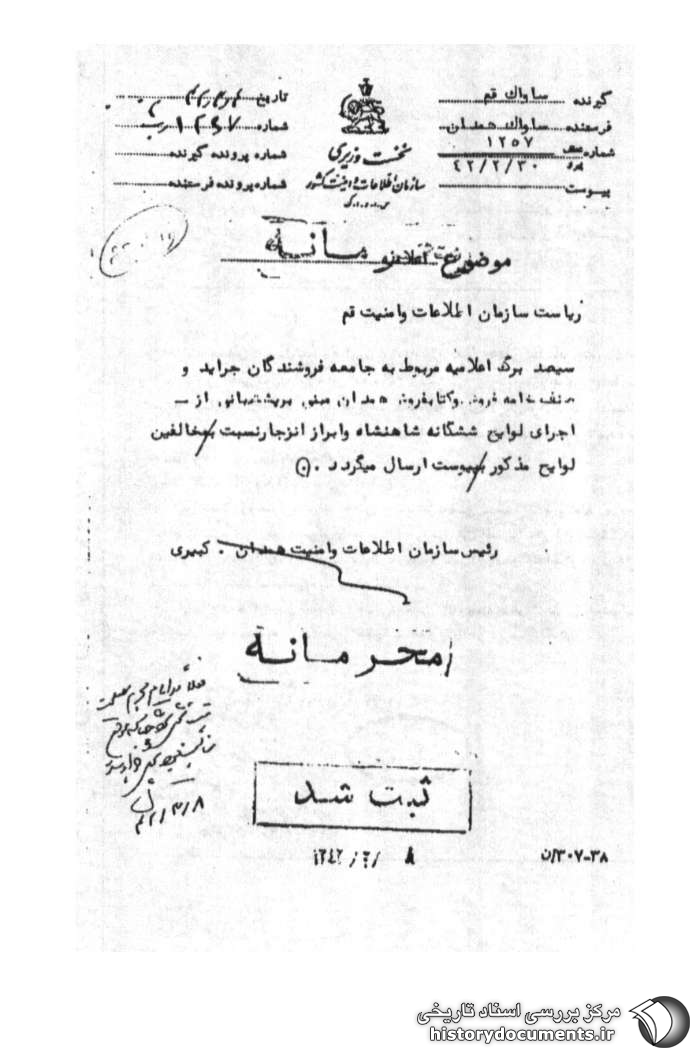 گیرنده ساواک قم
فرستنده ساواک همدان
شماره ۱۲۵۷
۴۲/۲/۳۰
پیوست
نخست وزیری
سازمان اطلاعات و امنیت کشور
س.ا.و.ا.ک
تاریخ
شماره
شماره پرونده گیرنده
شماره پرونده فرستنده
موضوع اعلامیه
ریاست سازمان اطلاعات وامنیت قم
سیصد برگ اعلامیه مربوط به جامعه فروشندگان جراید و
صنف خامه فروش وکتابفروش همدان مبنی برپشتیبانی از –
اجرای لوایح ششگانه شاهنشاه وابراز انزجارنسبت بمخالفین
لوایح مذکور بپیوست ارسال میگردد .
رئیس سازمان اطلاعات وامنیت همدان . کبیری
محرمانه
۴۲/۳/۸
ثبت شد
۸ /۳/ ۱۳۴۲
۳۰۷-۳۸/ن
مرکز بررسی اسناد تاریخی
historydocuments.ir